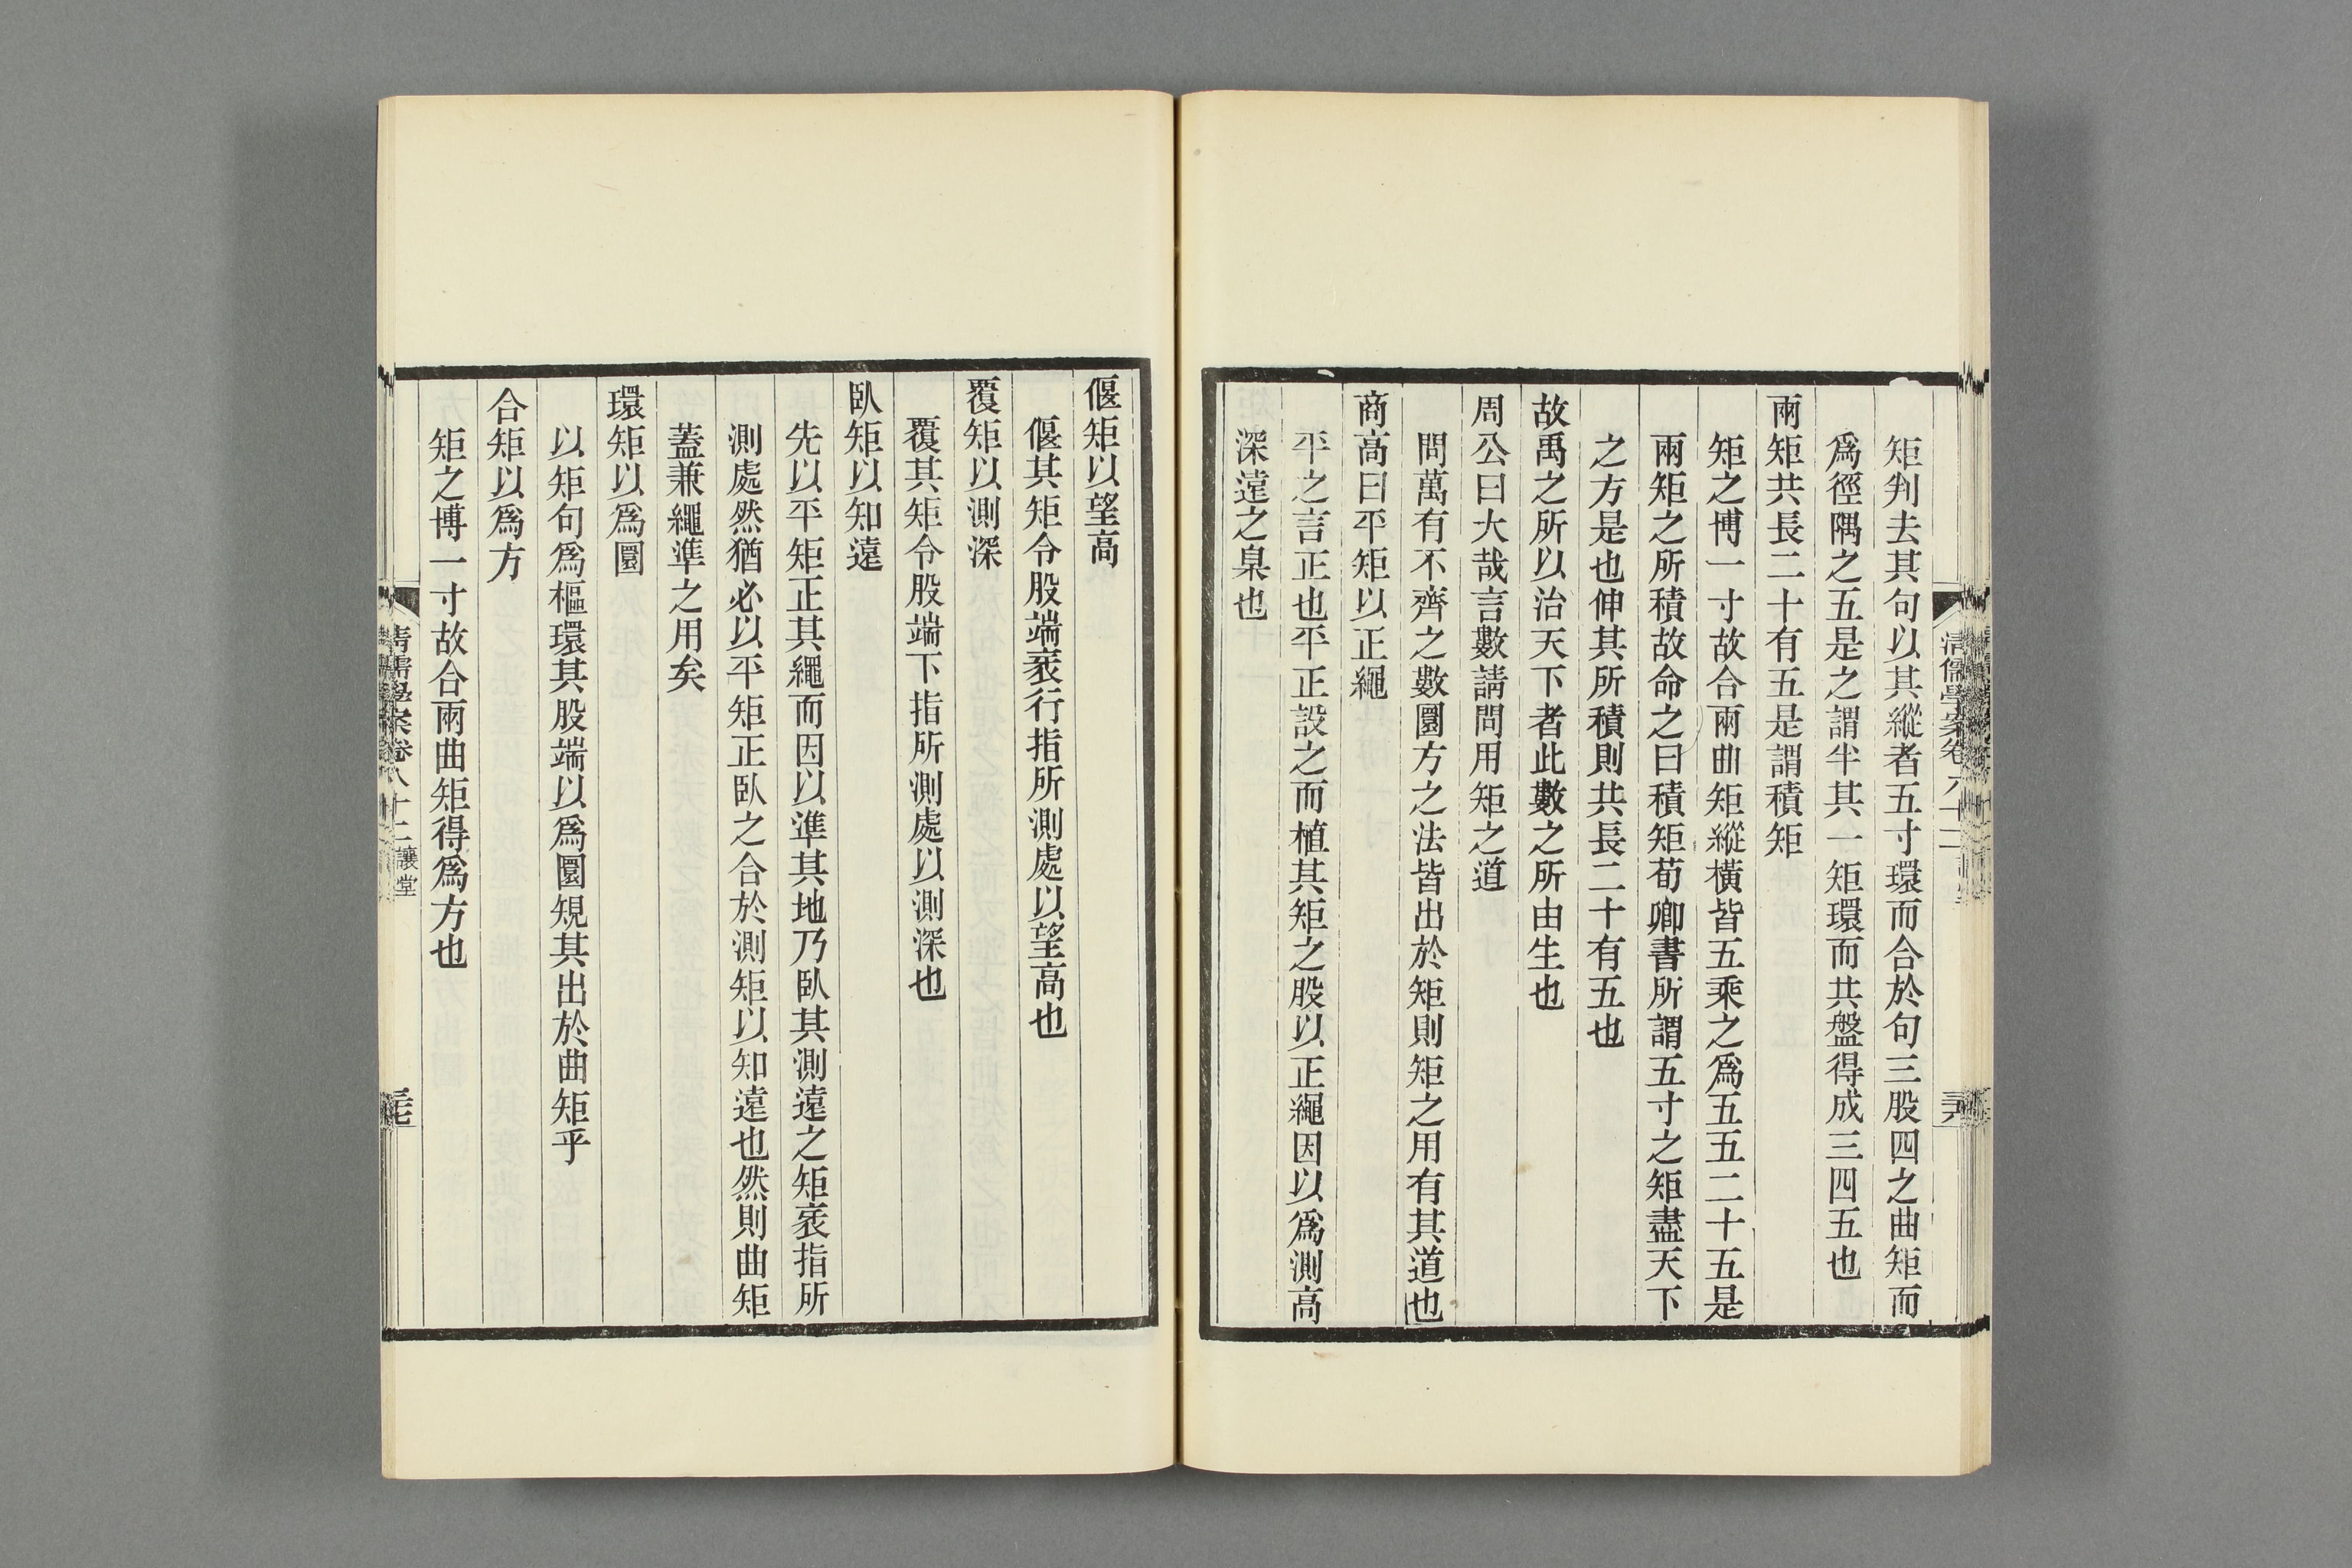 矩判去其句以其縱者五寸環而合於句三股四之曲矩而
爲徑隅之五是之謂半其一矩環而共盤得成三四五也
兩矩共長二十有五是謂積矩
矩之博一寸故合兩曲矩縱橫皆五乘之爲五五二十五是
兩矩之所積故命之曰積矩荀卿書所謂五寸之矩盡天下
之方是也伸其所積則共長二十有五也
故禹之所以治天下者此數之所由生也
周公曰大哉言數請問用矩之道
問萬有不齊之數圜方之法皆出於矩則矩之用有其道也
商高曰平矩以正繩
平之言正也平正設之而植其矩之股以正繩因以爲測高
深遠之臬也
偃矩以望高
偃其矩令股端衺行指所測處以望高也
覆矩以測深
覆其矩令股端下指所測處以測深也
臥矩以知遠
先以平矩正其繩而因以準其地乃臥其測遠之矩衺指所
測處然猶必以平矩正臥之合於測矩以知遠也然則曲矩
蓋兼繩準之用矣
環矩以爲圜
以矩句爲樞環其股端以爲圜規其出於曲矩乎
合矩以爲方
矩之博一寸故合兩曲矩得爲方也
清儒學案卷八十二